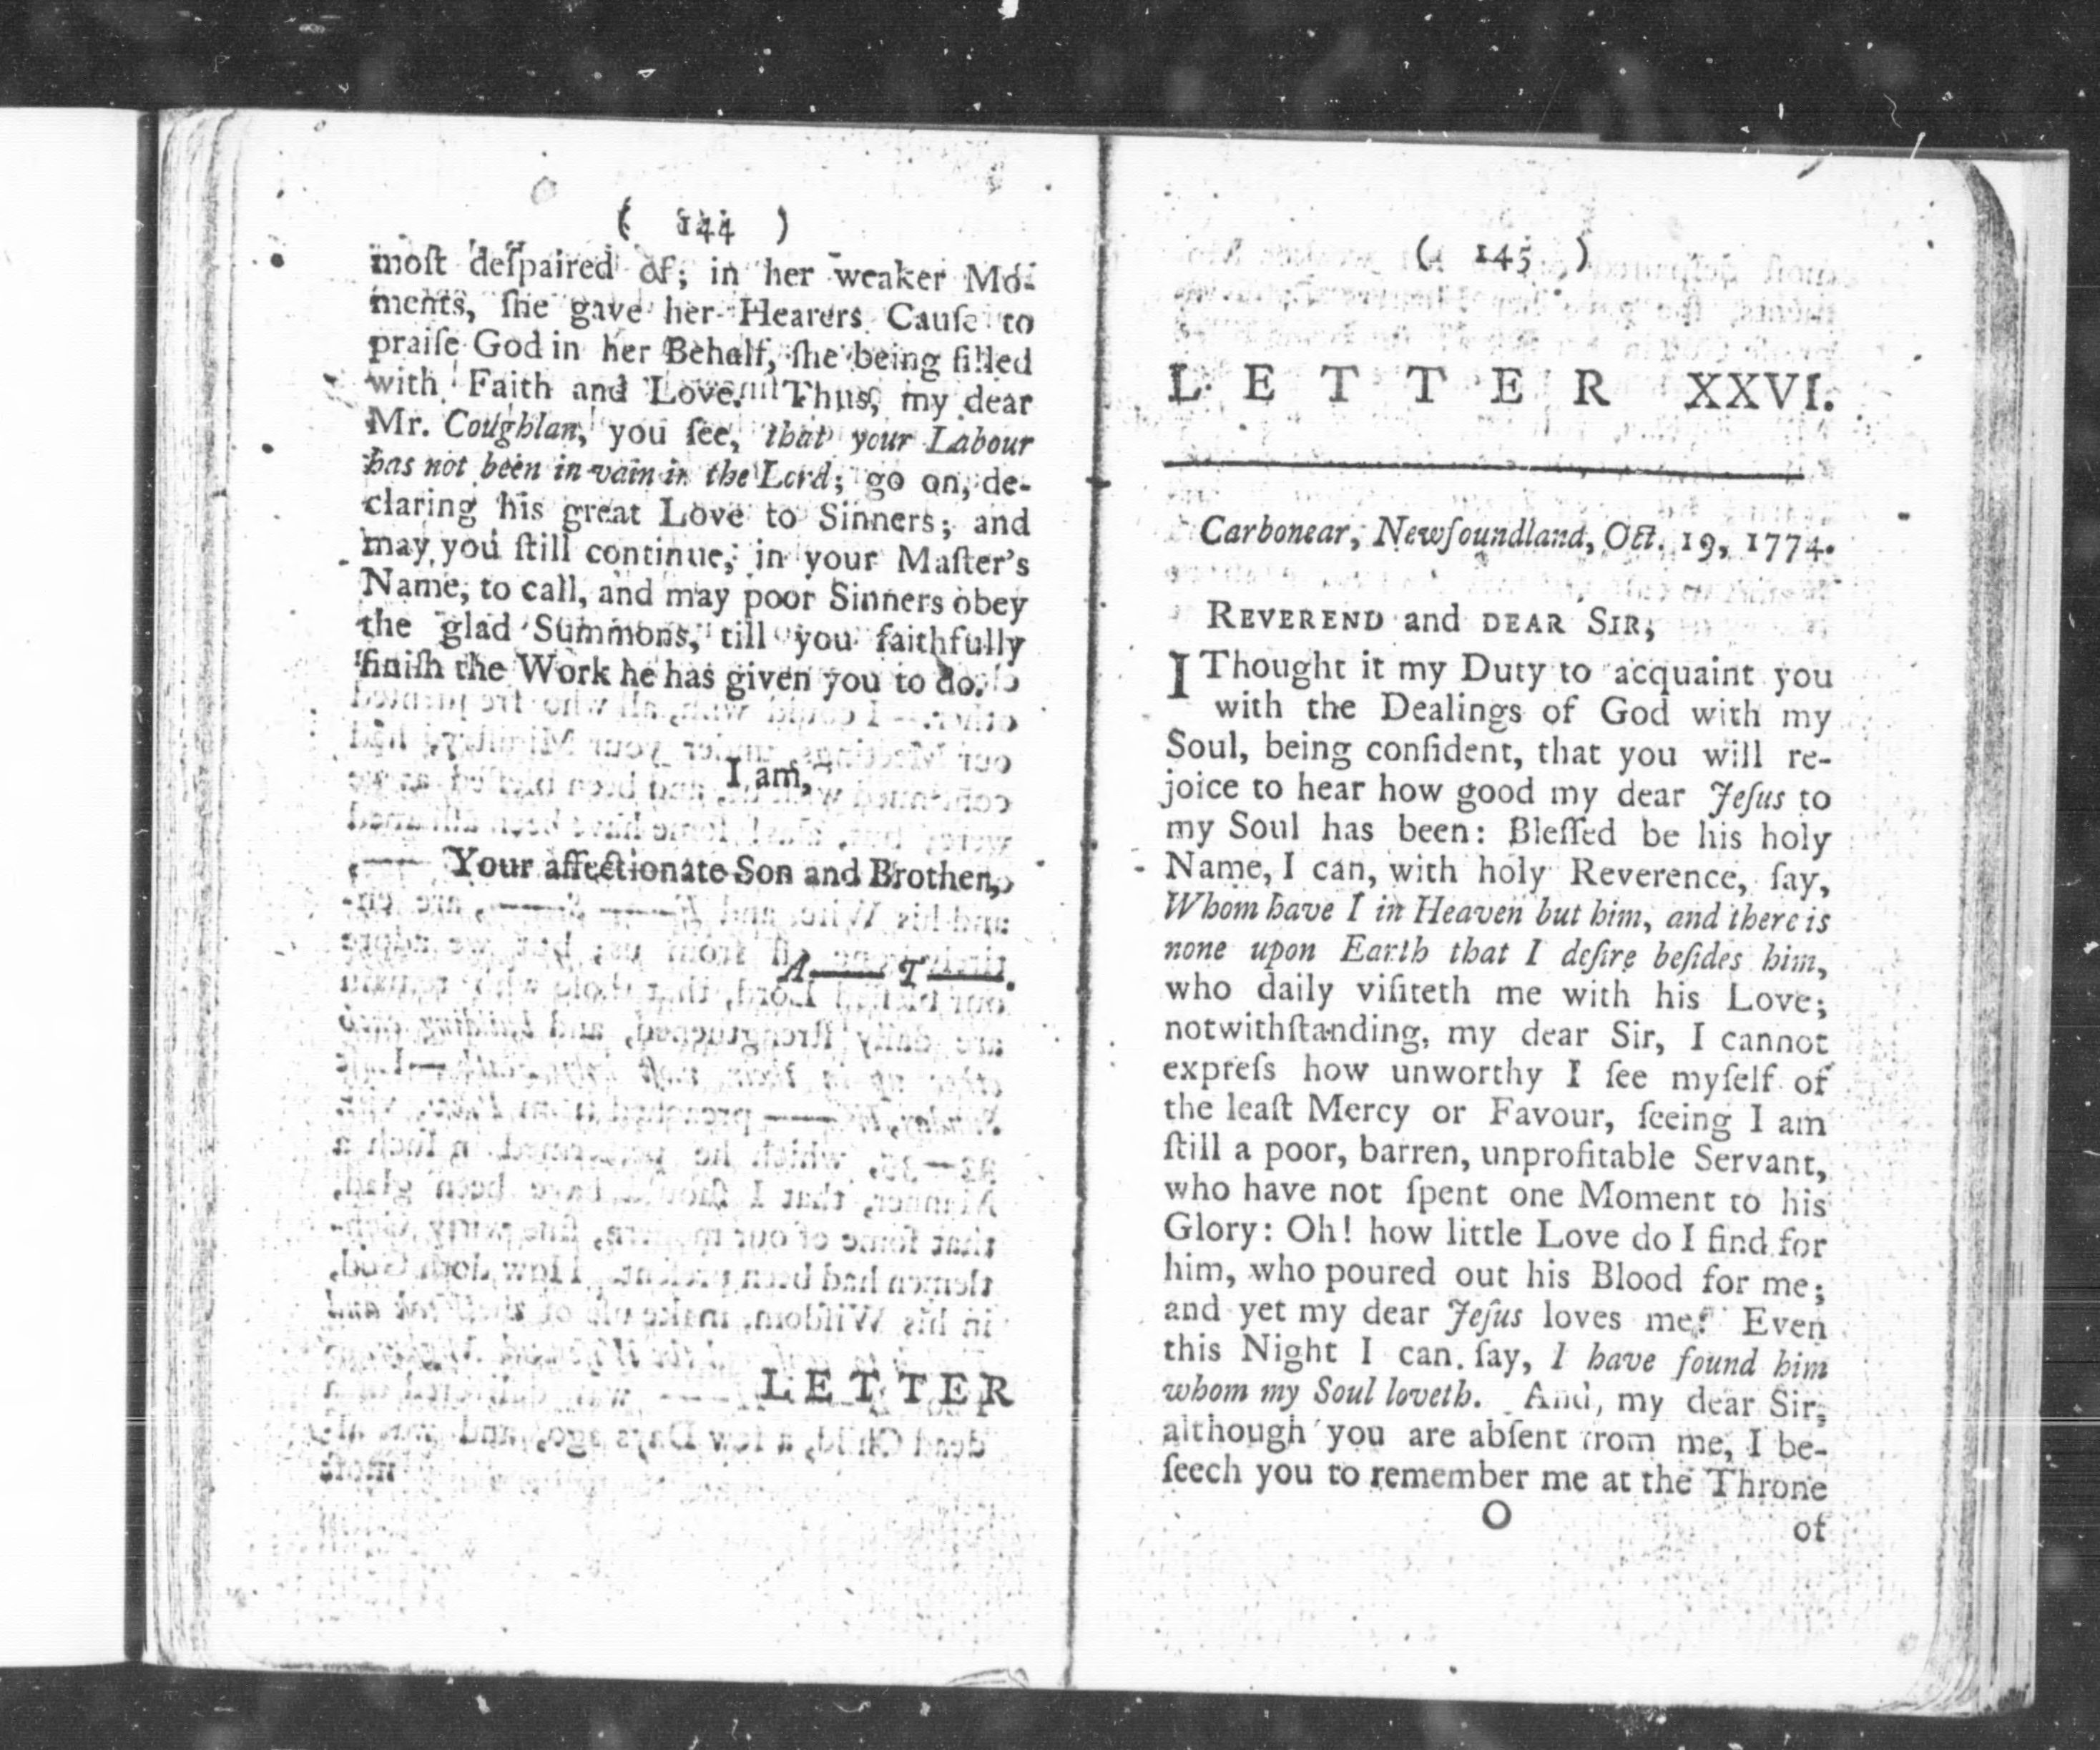 ( 144 )
moſt deſpaired of; in her weaker Mo-
ments, ſhe gave her Hearers Cauſe to
praiſe God in her Behalf, ſhe being filled
with Faith and Love. Thus, my dear
Mr. Coughlan, you ſee, that your Labour
has not been in vain in the Lord; go on, de-
claring his great Love to Sinners; and
may you ſtill continue, in your Maſter's
Name, to call, and may poor Sinners obey
the glad Summons, till you faithfully
finiſh the Work he has given you to do.
I am,
Your affectionate Son and Brother,
A—— T——.
LETTER
( 145 )
LETTER XXVI.
Carbonear, Newfoundland, Oct. 19, 1774.
REVEREND and DEAR SIR,
I Thought it my Duty to acquaint you
with the Dealings of God with my
Soul, being confident, that you will re-
joice to hear how good my dear Jeſus to
my Soul has been: Bleſſed be his holy
Name, I can, with holy Reverence, ſay,
Whom have I in Heaven but him, and there is
none upon Earth that I deſire beſides him,
who daily viſiteth me with his Love;
notwithſtanding, my dear Sir, I cannot
expreſs how unworthy I ſee myſelf of
the leaſt Mercy or Favour, ſeeing I am
ſtill a poor, barren, unprofitable Servant,
who have not ſpent one Moment to his
Glory: Oh! how little Love do I find for
him, who poured out his Blood for me;
and yet my dear Jeſus loves me! Even
this Night I can ſay, I have found him
whom my Soul loveth. And, my dear Sir,
although you are abſent from me, I be-
ſeech you to remember me at the Throne
O
of